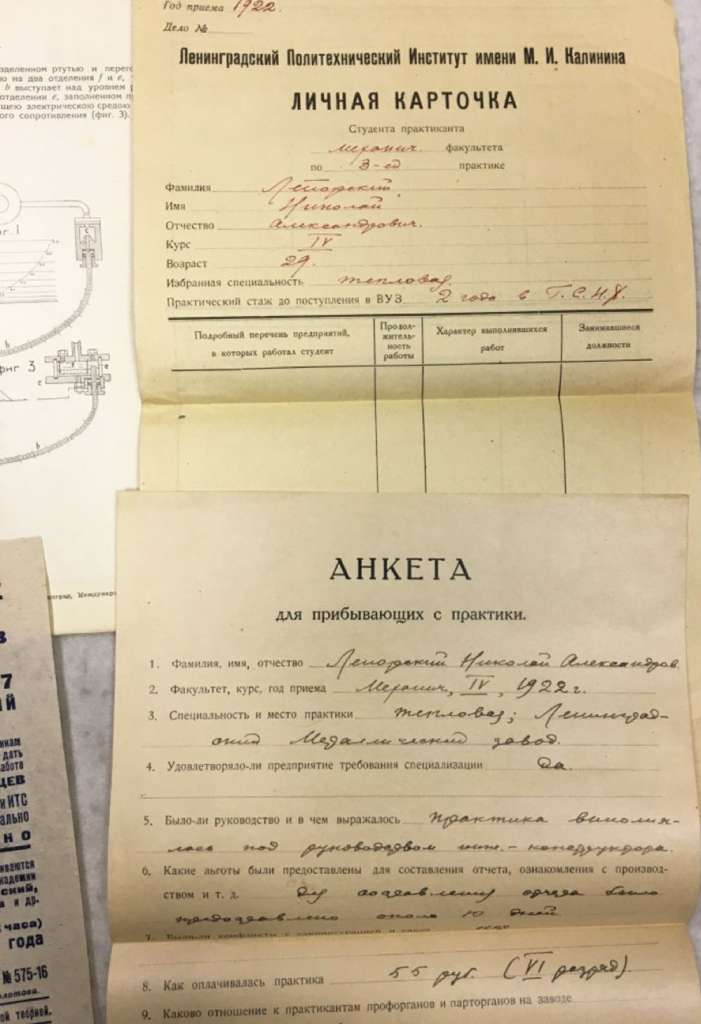 Год приема 1922.
Дело №
Ленинградский Политехнический Институт имени М. И. Калинина
ЛИЧНАЯ КАРТОЧКА
Студента практиканта
механич. факультета
по 3-ей практике
Фамилия
Имя Николай
Отчество Александрович.
Курс IV
Возраст 29.
Избранная специальность тепловая.
Практический стаж до поступления в ВУЗ 2 года в Г.С.Н.Х.
Подробный перечень предприятий,
в которых работал студент
Продол-
житель-
ность
работы
Характер выполнявшихся
работ
Занимавшиеся
должности
АНКЕТА
для прибывающих с практики.
1. Фамилия, имя, отчество Николай Александров.
2. Факультет, курс, год приема Механич, IV, 1922 г.
3. Специальность и место практики тепловая; Ленинград-
ский Металлический завод.
4. Удовлетворяло-ли предприятие требования специализации да.
5. Было-ли руководство и в чем выражалось практика выполня-
лась под руководством инж.-конструктора.
6. Какие льготы были предоставлены для составления отчета, ознакомления с производ-
ством и т. д. для составления отчета было
предоставлено около 10 дней
8. Как оплачивалась практика 55 руб. (VI разряд).
9. Каково отношение к практикантам профорганов и парторганов на заводе
зделенном ртутью и
но на два отделения f и e,
b выступает над уровнем
отделении e, заполненном
ущею электрическою средою
ого сопротивления (фиг. 3).
г. 1
фиг 3
e
b
b
7
дать
ЦЕВ
и ИТС
НО
и др.
часа)
года
№ 575-16